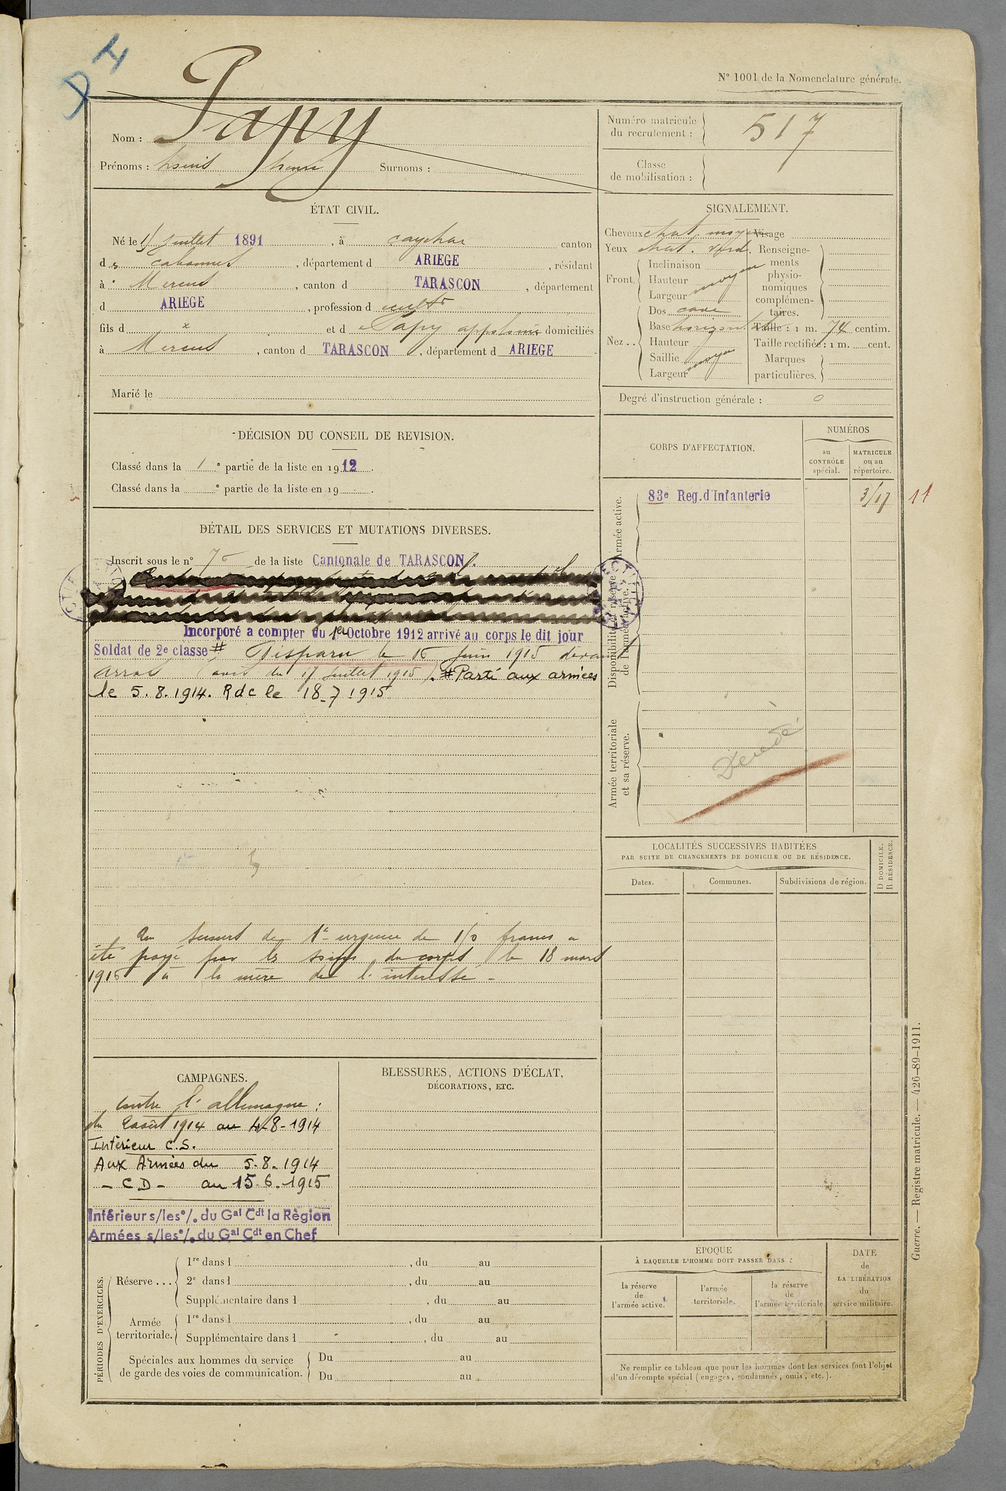 DH
N° 1001 de la Nomenclature générale.
Nom : Papy
Prénoms : Louis henri Surnoms :
Numéro matricule du recrutement : 517
Classe de mobilisation :
ÉTAT CIVIL.
Né le juillet 1891, à caychac canton
d cabannes, département d ARIEGE, résidant
à Mercus, canton d TARASCON, département
d ARIEGE, profession d cultr
fils d x et d Papy domiciliés
à Mercus, canton d TARASCON, département d ARIEGE
Marié le
SIGNALEMENT.
Cheveux chat. moyen Visage
Yeux chat. verd. Renseignements physionomiques complémentaires.
Front Inclinaison
Hauteur moyen
Largeur
Nez Dos cave
Base horizontale
Hauteur
Saillie moyen
Largeur
Taille : 1 m. 74 centim.
Taille rectifiée : 1 m. cent.
Marques particulières.
Degré d'instruction générale : 0
DÉCISION DU CONSEIL DE REVISION.
Classé dans la 1e partie de la liste en 1912.
Classé dans la e partie de la liste en 19 .
CORPS D'AFFECTATION.
NUMÉROS
au CONTRÔLE spécial.
MATRICULE ou au répertoire.
Armée active.
83e Reg. d'Infanterie
11
Disponibilité et réserve de l'armée active.
Armée territoriale et sa réserve.
Décédé
DÉTAIL DES SERVICES ET MUTATIONS DIVERSES.
Inscrit sous le n° de la liste Cantonale de TARASCON
Incorporé a compter du 1er Octobre 1912 arrivé au corps le dit jour
Soldat de 2e classe # Disparu le 15 juin 1915 devant
Arras (avis du 17 juillet 1915). # Parti aux armées
le 5.8.1914. Rdc le 18_7 1915
Un secours de 1re urgence de 150 francs a
été payé par les soins du corps le 18 mars
191 à la mère de l'intéressé -
LOCALITÉS SUCCESSIVES HABITÉES
PAR SUITE DE CHANGEMENTS DE DOMICILE OU DE RÉSIDENCE.
Dates.
Communes.
Subdivisions de région.
D DOMICILE.
R RÉSIDENCE.
CAMPAGNES.
Contre l'allemagne :
du 2 août 1914 au 4-8-1914
Intérieur C.S.
Aux Armées du 5.8.1914
- C.D - au 15.6.1915
Intérieur s/les o/. du Gal Cdt la Région
Armées s/les o/. du Gal Cdt en Chef
BLESSURES, ACTIONS D'ÉCLAT,
DÉCORATIONS, ETC.
PÉRIODES D'EXERCICES.
Réserve... 1re dans l , du au
2e dans l , du au
Supplémentaire dans l , du au
Armée territoriale. 1re dans l , du au
Supplémentaire dans l , du au
Spéciales aux hommes du service de garde des voies de communication. Du au
Du au
ÉPOQUE
À LAQUELLE L'HOMME DOIT PASSER DANS :
la réserve de l'armée active.
l'armée territoriale.
la réserve de l'armée territoriale.
DATE de LA LIBÉRATION du service militaire.
Ne remplir ce tableau que pour les hommes dont les services font l'objet
d'un décompte spécial (engagés, condamnés, omis, etc.).
Guerre. — Registre matricule. — 426-89-1911.